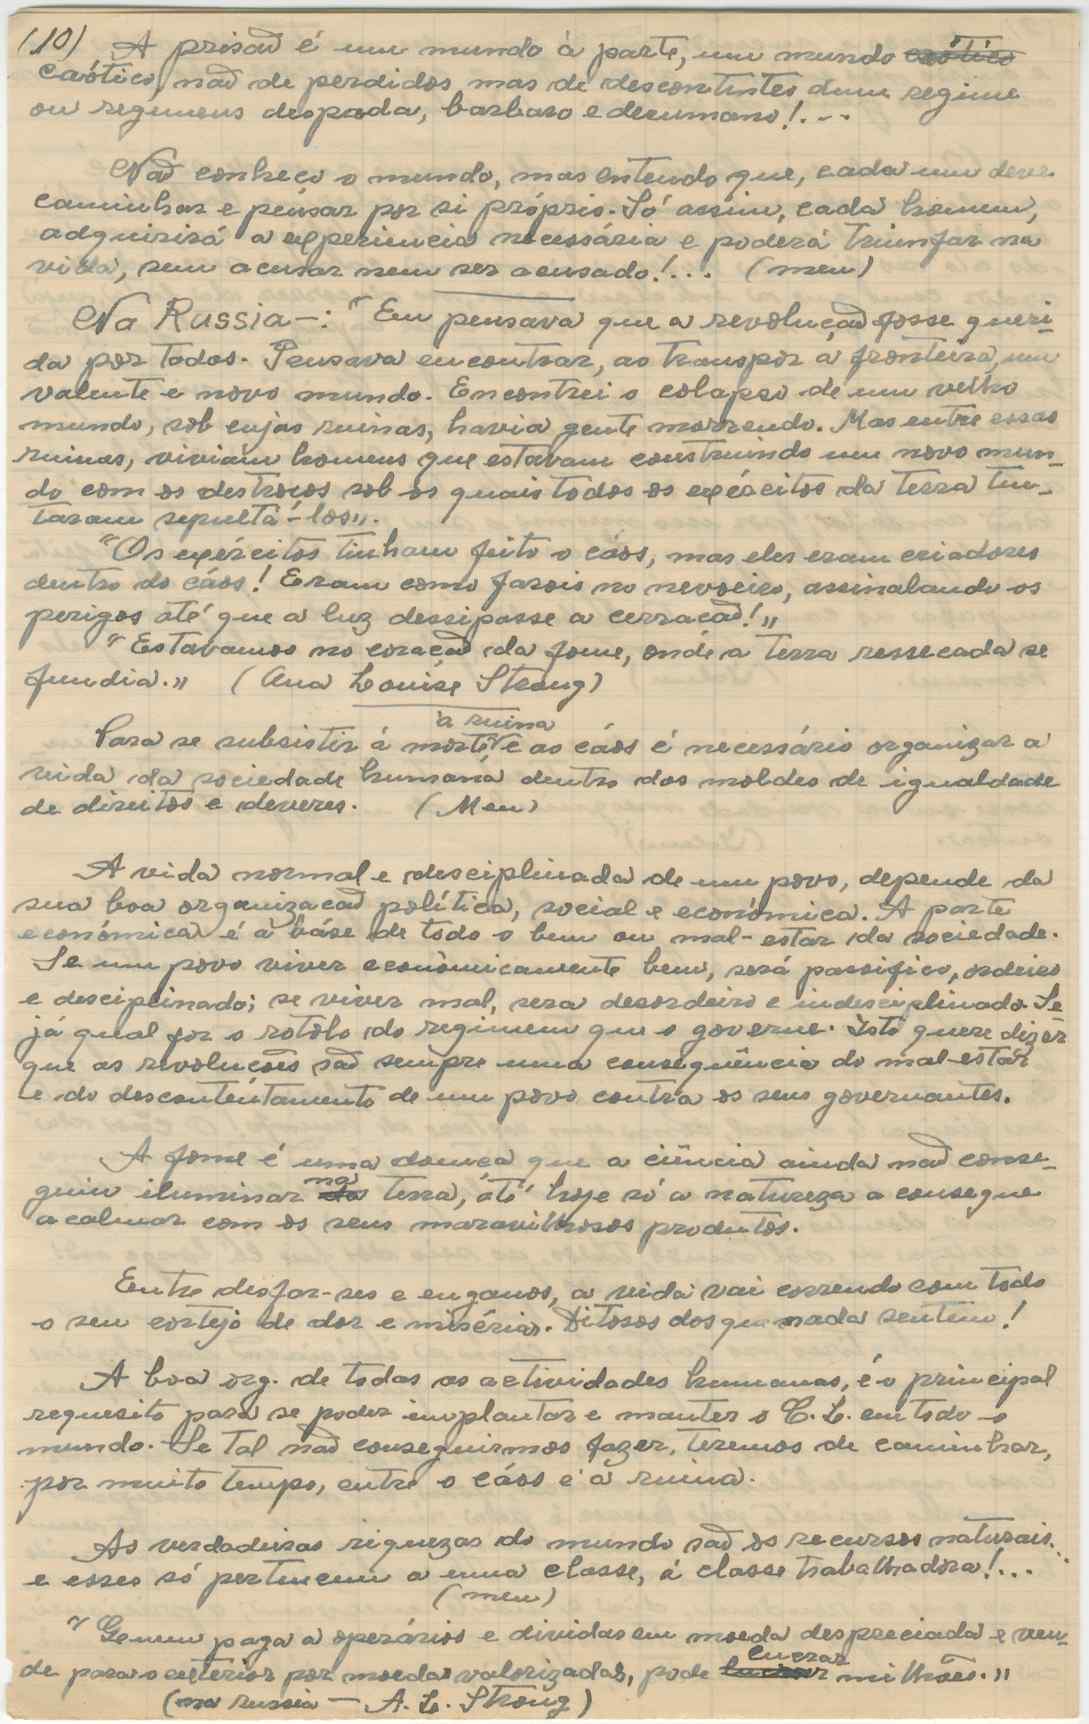 (10) A prisaõ é um mundo à parte, um mundo exótico
caótico, naõ de perdidos mas de descontentes dum regime
ou regimens despada, barbaro e desumano!...
Naõ conheço o mundo, mas entendo que, cada um deve
caminhar e pensar por si próprio. Só assim, cada homem,
adquirirá a experiencia necessária e poderá triunfar na
vida, sem acusar nem ser acusado!... (meu)
Na Russia-: "Eu pensava que a revoluçaõ fosse queri-
da por todos. Pensava encontrar, ao transpor a fronteira, um
valente e novo mundo. Encontrei o colapso de um velho
mundo, sob cujas ruinas, havia gente morrendo. Mas entre essas
ruinas, viviam homens que estavam construindo um novo mun-
do com os destroços sob os quais todos os exércitos da terra ten-
taram sepultá-los".
"Os exércitos tinham feito o cáos, mas eles eram criadores
dentro do cáos! Eram como farois no nevoeiro, assinalando os
perigos até que a luz dessipasse a cerraçaõ!"
"Estavamos no coraçaõ da fome, onde a terra ressecada se
fundia." (Ana Louise Strong)
à ruina
Para se subsistir á morte e ao cáos é necessário organizar a
vida da sociedade humana dentro dos moldes de igualdade
de direitos e deveres. (Meu)
A vida normal e desciplinada de um povo, depende da
sua boa organizacaõ política, social e económica. A parte
económica é a báse de todo o bem ou mal-estar da sociedade.
Se um povo viver económicamente bem, será passifico, ordeiro
e desciplinado; se viver mal, sera desordeiro e indesciplinado. Se
já qual for o rotolo do regimem que o governe. Isto quere dizer
que as revoluções saõ sempre uma consequência do mal-estar
e do descontentamento de um povo contra os seus governantes.
A fome é uma doença que a ciência ainda naõ conse-
guiu iluminar na terra, até hoje só a natureza a consegue
acalmar com os seus maravilhosos produtos.
Entre desfar-ses e enganos, a vida vai correndo com todo
o seu cortejo de dor e miséria. Ditosos dos que nada sentem!
A boa org. de todas as actividades humanas, é o principal
requesito para se poder implantar e manter o C. L. em todo o
mundo. Se tal naõ conseguirmos fazer, teremos de caminhar,
por muito tempo, entre o cáos e a ruina.
As verdadeiras riquezas do mundo saõ os recursos naturais...
e esses só pertencem a uma classe, á classe trabalhadora!...
(meu)
"Quem paga a operários e dividas em moeda despreciada e ven-
lucrar
de para o exterior por moedas valorizadas, pode milhões."
(na russia - A. L. Strong)